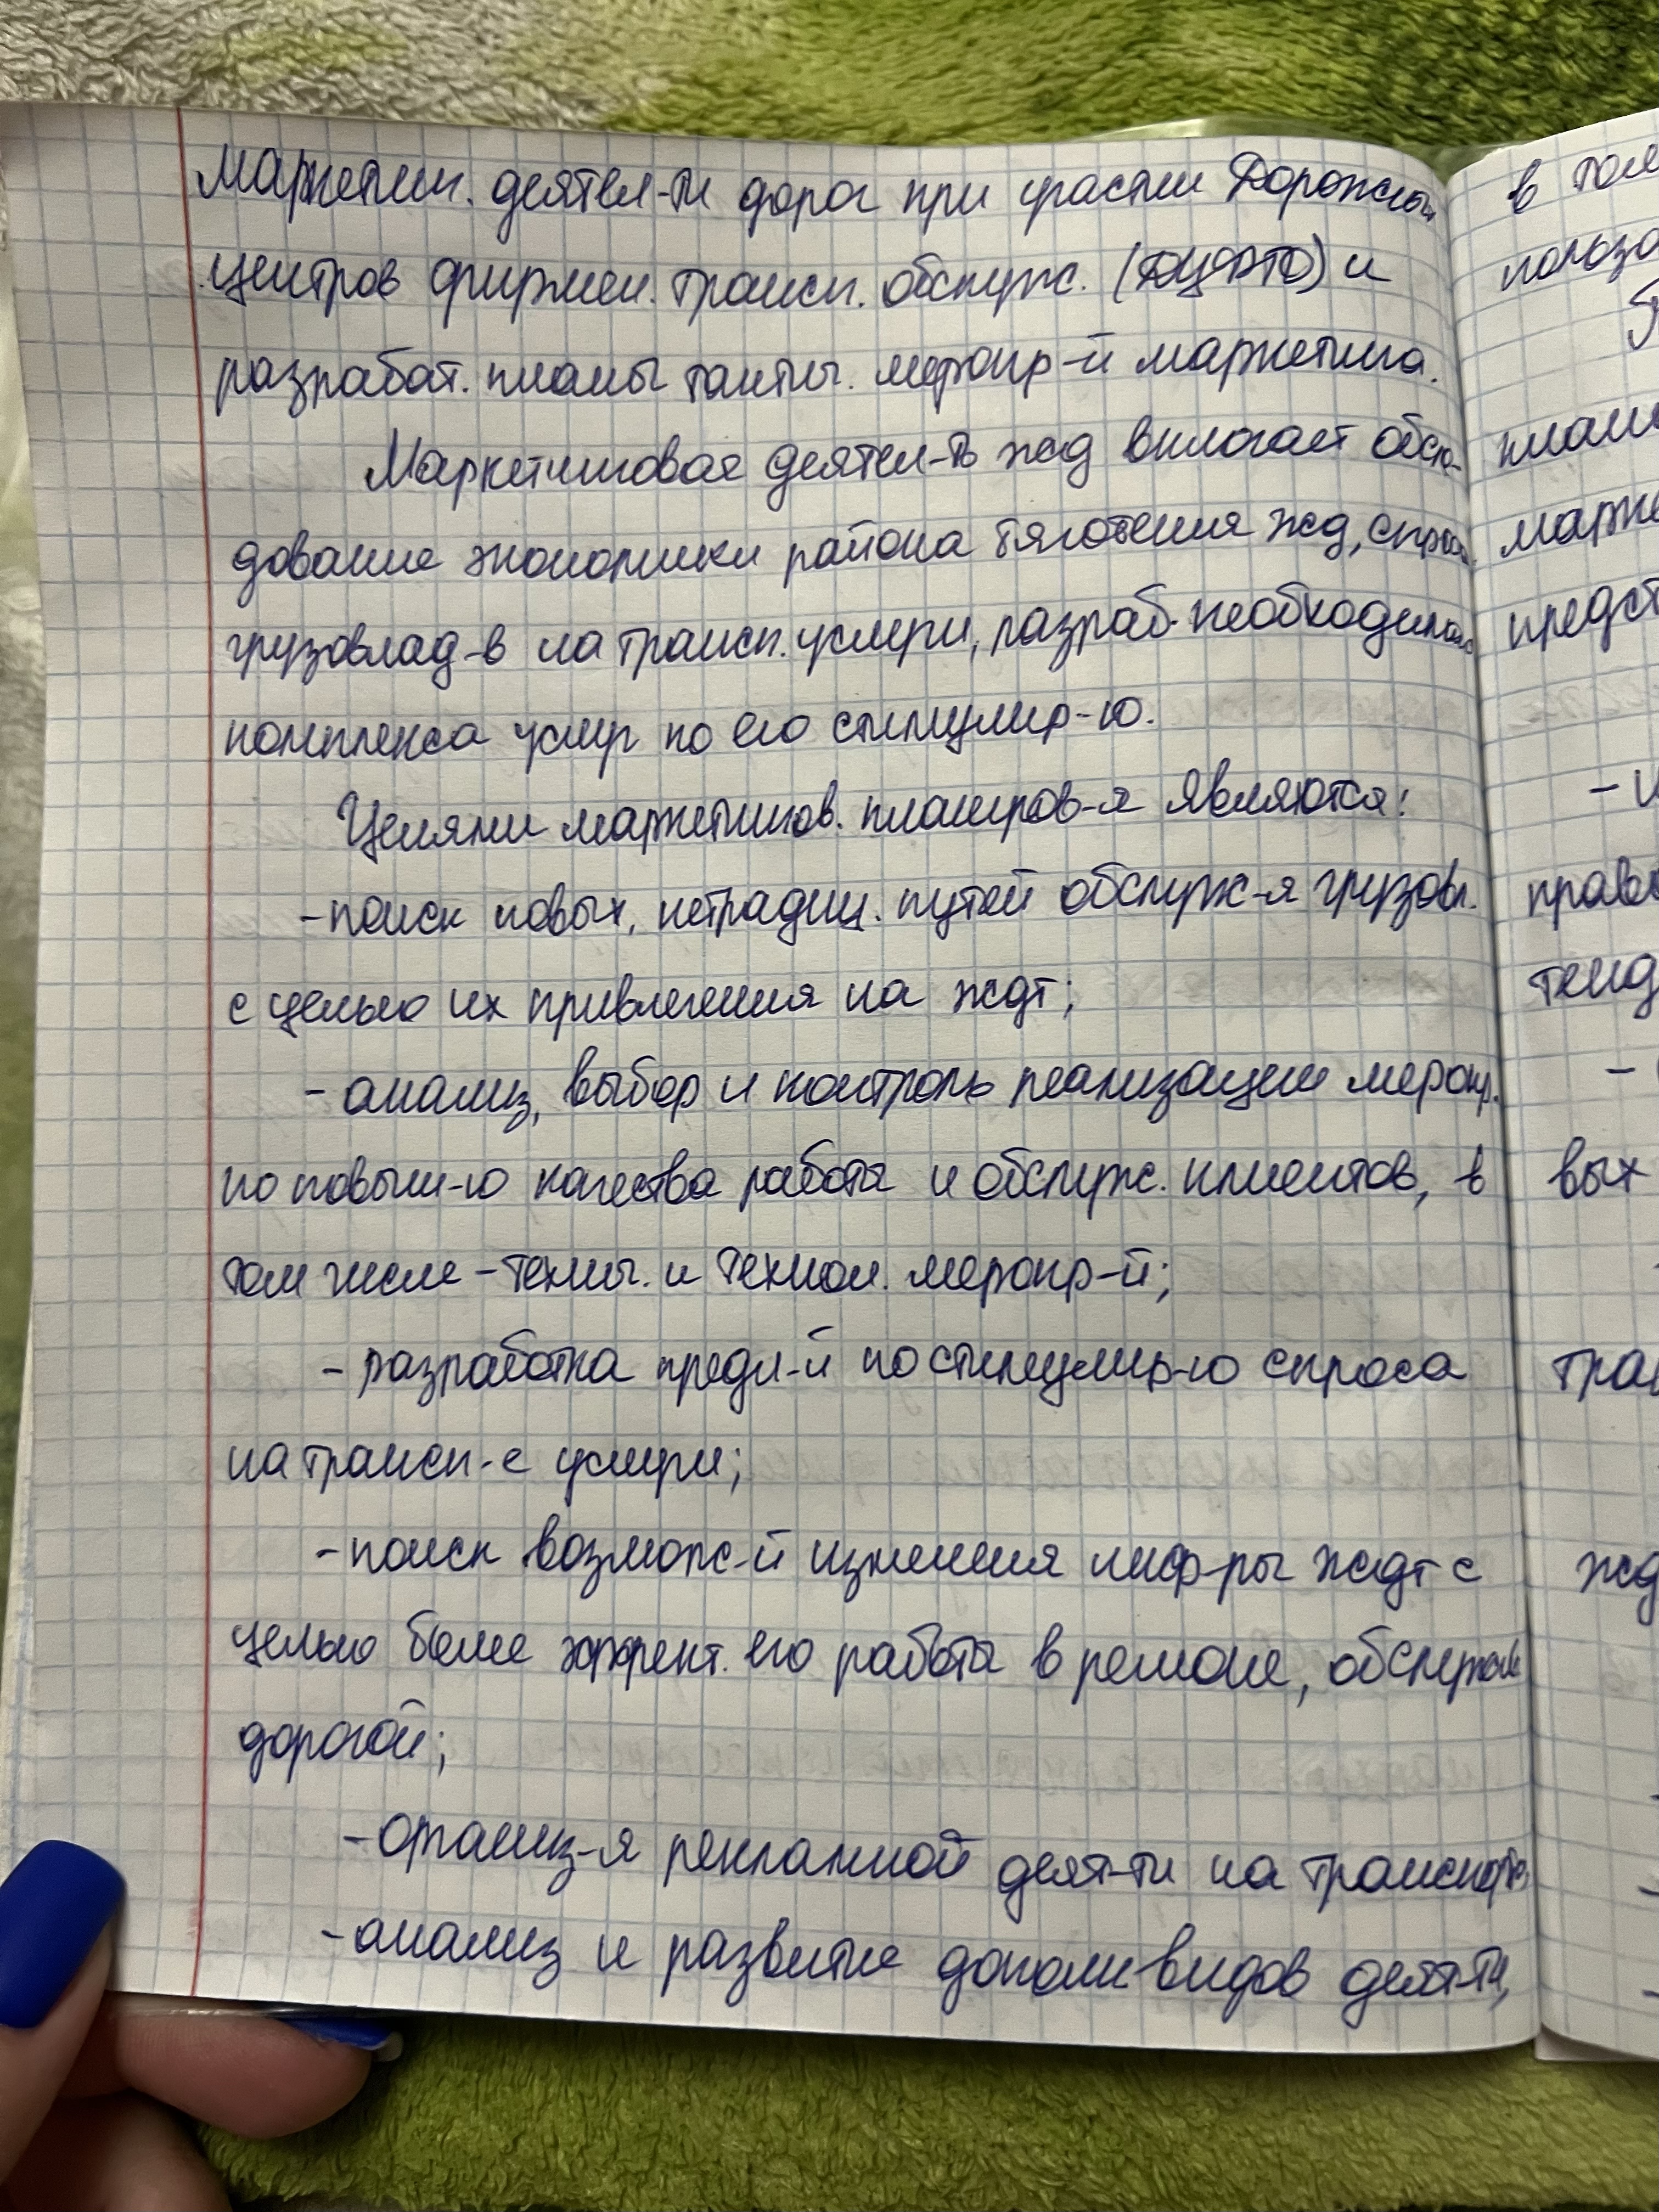 Маркетин. деятел-ти дорог при участии Дорожных
центров фирмен. трансп. обслуж. (ДЦФТО) и
разрабат. планы тактич. меропр-й маркетинга.
Маркетинговая деятел-ть жд включает обсле-
дование экономики района тяготения жд, спроса
грузовлад-в на трансп. услуги, разраб. необходимого
комплекса услуг по его стимулир-ю.
Целями маркетингов. планиров-я являются:
- поиск новых, нетрадиц. путей обслуж-я грузовл.
с целью их привлечения на ждт;
- анализ, выбор и контроль реализации меропр.
по повыш-ю качества работы и обслуж. клиентов, в
том числе - технич. и технол. меропр-й;
- разработка предл-й по стимулир-ю спроса
на трансп-е услуги;
- поиск возможн-й изменения инфр-ры ждт с
целью более эффект. его работы в регионе, обслужив.
дорогой;
- организ-я рекламной деят-ти на транспорте;
- анализ и развитие дополн видов деят-ти,
в том
польз
план
марке
предст
- и
прав
тенд
-
вых
тран
жд